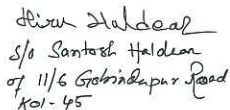 Hiru Haldear
S/o Santosh Haldear
of 11/6 Gobindapur Road
Kol-45